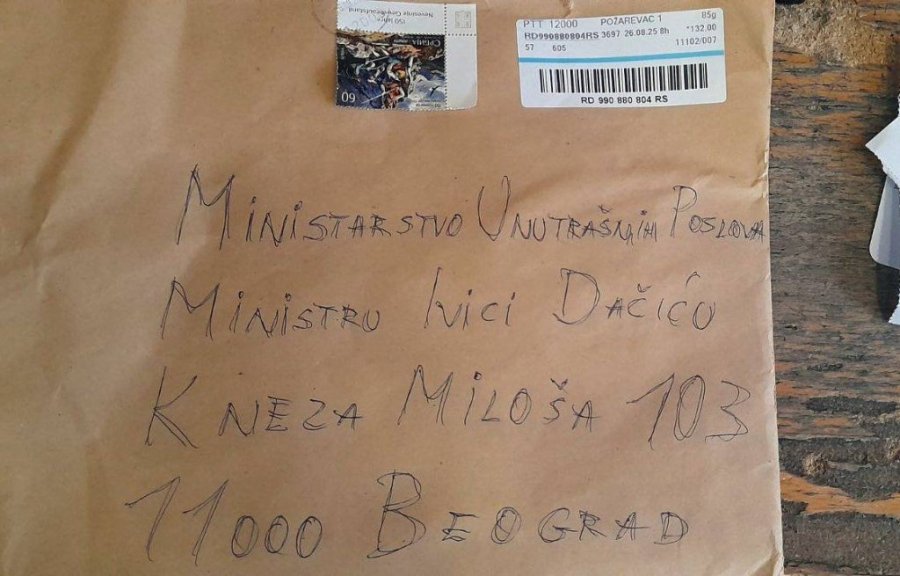 150 Jahre
PTT 12000 POŽAREVAC 1 85g
RD990880804RS 3697 26.08.25 8h *132.00
57 605 11102/007
RD 990 880 804 RS
СРБИЈА
60
MINISTARSTVO UNUTRAŠNJIH POSLOVA
MINISTRU IVICI DAČIĆU
KNEZA MILOŠA 103
11000 BEOGRAD